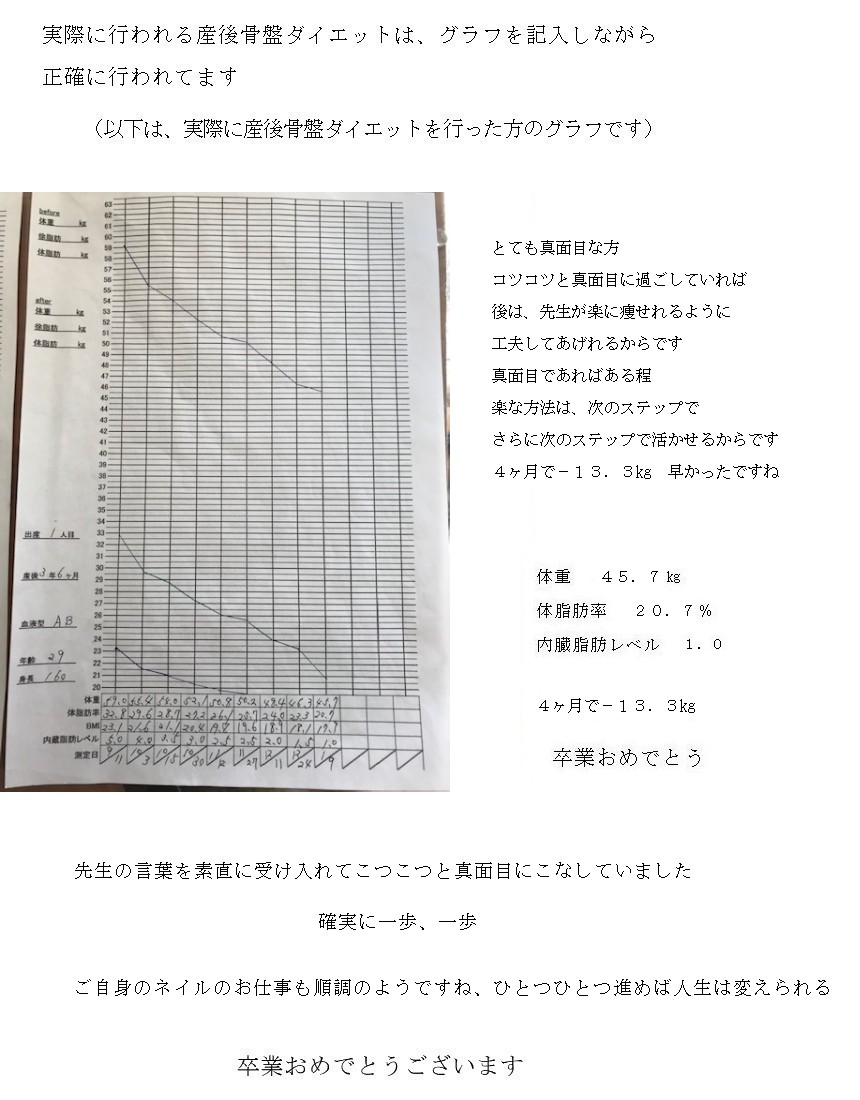 実際に行われる産後骨盤ダイエットは、グラフを記入しながら
正確に行われてます
（以下は、実際に産後骨盤ダイエットを行った方のグラフです）
before
体重 kg
体脂肪 kg
after
体重 kg
体脂肪 kg
63
62
61
60
59
58
57
56
55
54
53
52
51
50
49
48
47
46
45
44
43
42
41
40
39
38
37
36
35
34
33
32
31
30
29
28
27
26
25
24
23
22
21
20
出産 1 人目
産後3年6ヶ月
血液型 AB
年齢 29
身長 160
体重 59.0 55.4 52.1 50.8 50.2 48.4 46.3 45.7
体脂肪率 32.8 29.6 28.7 27.2 26.1 25.7 24.0 23.3 20.7
BMI 23.1 21.6 21.1 20.4 19.8 19.6 18.9 18.1
内蔵脂肪レベル 5.0 4.0 3.5 3.0 2.5 2.5 2.0 1.5 1.0
測定日
とても真面目な方
コツコツと真面目に過ごしていれば
後は、先生が楽に痩せれるように
工夫してあげれるからです
真面目であればある程
楽な方法は、次のステップで
さらに次のステップで活かせるからです
４ヶ月で－１３．３㎏　早かったですね
体重　４５．７㎏
体脂肪率　２０．７％
内臓脂肪レベル　１．０
４ヶ月で－１３．３㎏
卒業おめでとう
先生の言葉を素直に受け入れてこつこつと真面目にこなしていました
確実に一歩、一歩
ご自身のネイルのお仕事も順調のようですね、ひとつひとつ進めば人生は変えられる
卒業おめでとうございます